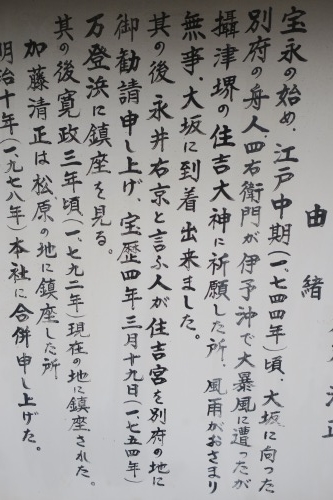 由緒
宝永の始め、江戸中期(一、七四四年)頃、大坂に向った
別府の舟人、四右衛門が伊予沖で大暴風に遭ったが
攝津堺の住吉大神に祈願した所、風雨がおさまり
無事、大坂に到着出来ました。
其の後 永井右京と言ふ人が住吉宮を別府の地に
御勧請申し上げ、宝歴四年三月十九日(一、七五四年)
万登浜に鎮座を見る。
其の後寛政三年頃(一、七九二年)現在の地に鎮座された。
加藤清正は松原の地に鎮座した所
明治十年(一、九七八年)本社に合併申し上げた。